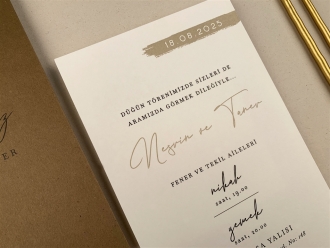 18.08.2025
DÜĞÜN TÖRENİMİZDE SİZLERİ DE
ARAMIZDA GÖRMEK DİLEĞİYLE...
Nesrin ve Taner
FENER VE TEKİL AİLELERİ
nikah
saat, 19.00
yemek
saat, 20.00
YALISI
No: 148
ER